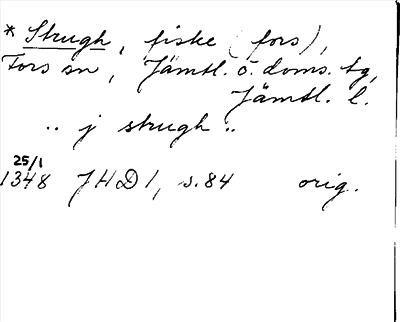 * Strugh, fiske (fors),
Fors sn, Jämtl. ö. doms. tg,
Jämtl. l.
.. j strugh ..
25/1
1348 JHD 1, s. 84 orig.